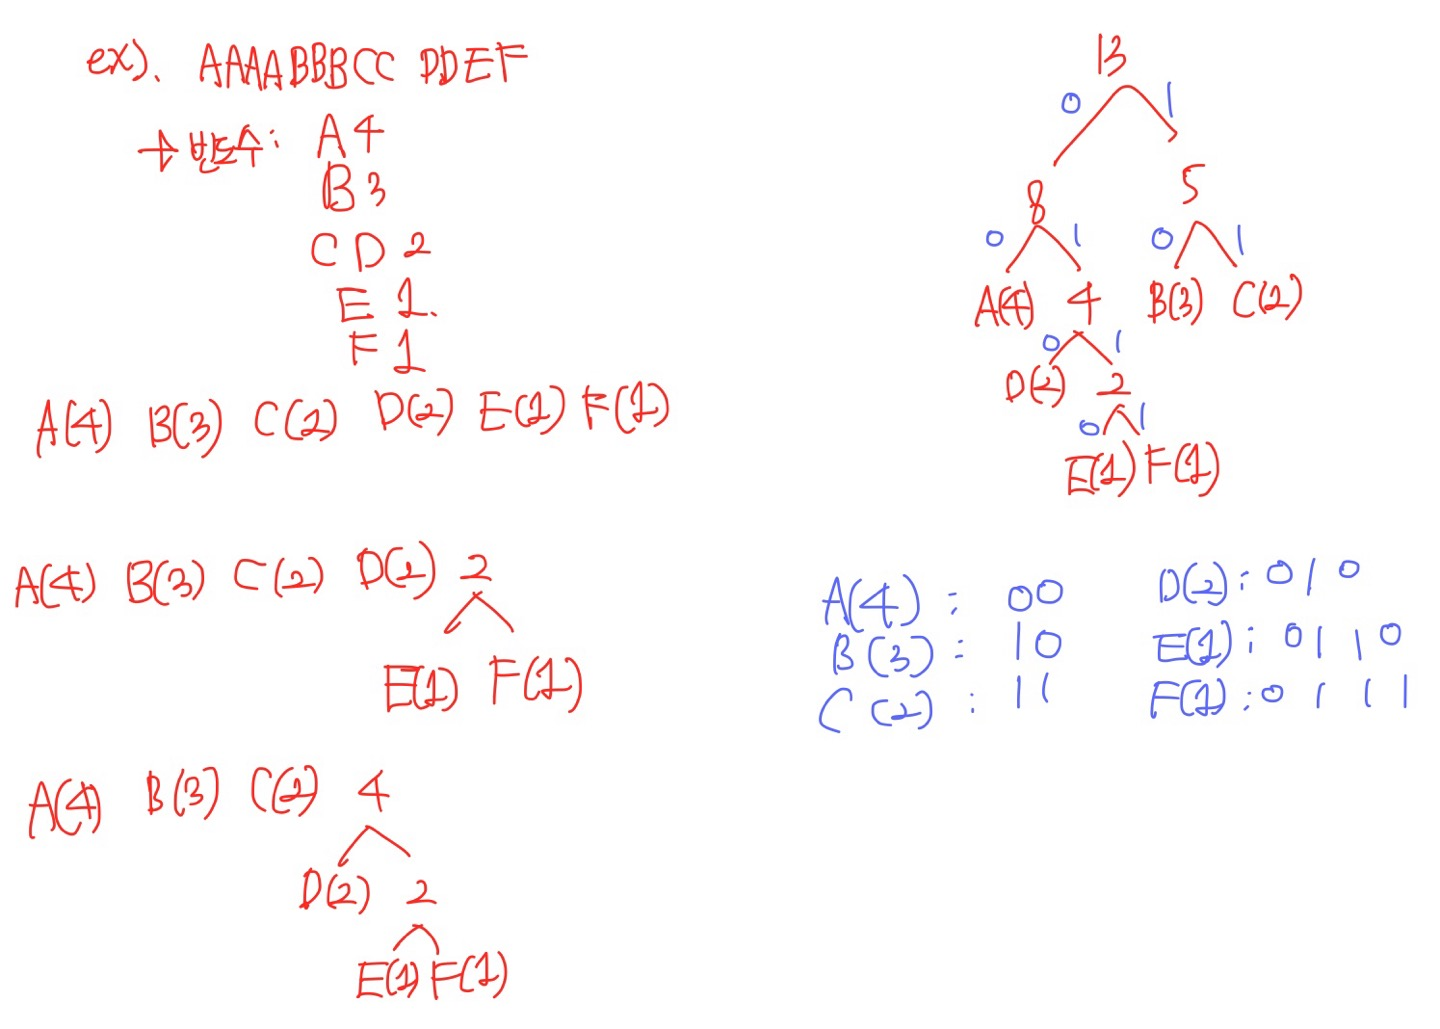 ex). AAAABBBCC DDEF
→ 빈도수: A4
B3
C D 2
E 1.
F 1
A(4) B(3) C(2) D(2) E(1) F(1)
A(4) B(3) C(2) D(2) 2
E(1) F(1)
A(4) B(3) C(2) 4
D(2) 2
E(1) F(1)
13
0 1
8 5
0 1 0 1
A(4) 4 B(3) C(2)
0 1
D(2) 2
0 1
E(1) F(1)
A(4) : 00
B(3) : 10
C(2) : 11
D(2) : 010
E(1) : 0110
F(1) : 0111